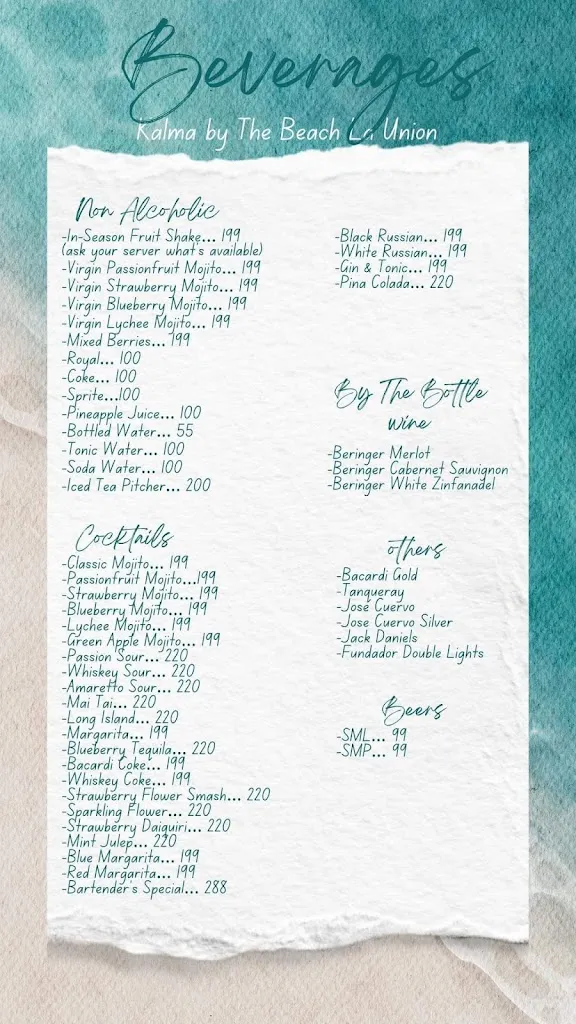 Beverages
Kalma by The Beach La Union
Non Alcoholic
-In-Season Fruit Shake... 199
(ask your server what's available)
-Virgin Passionfruit Mojito... 199
-Virgin Strawberry Mojito... 199
-Virgin Blueberry Mojito... 199
-Virgin Lychee Mojito... 199
-Mixed Berries... 199
-Royal... 100
-Coke... 100
-Sprite...100
-Pineapple Juice... 100
-Bottled Water... 55
-Tonic Water... 100
-Soda Water... 100
-Iced Tea Pitcher... 200
Cocktails
-Classic Mojito... 199
-Passionfruit Mojito...199
-Strawberry Mojito... 199
-Blueberry Mojito... 199
-Lychee Mojito... 199
-Green Apple Mojito... 199
-Passion Sour... 220
-Whiskey Sour... 220
-Amaretto Sour... 220
-Mai Tai... 220
-Long Island... 220
-Margarita... 199
-Blueberry Tequila... 220
-Bacardi Coke... 199
-Whiskey Coke... 199
-Strawberry Flower Smash... 220
-Sparkling Flower... 220
-Strawberry Daiquiri... 220
-Mint Julep... 220
-Blue Margarita... 199
-Red Margarita... 199
-Bartender's Special... 288
-Black Russian... 199
-White Russian... 199
-Gin & Tonic... 199
-Pina Colada... 220
By The Bottle
wine
-Beringer Merlot
-Beringer Cabernet Sauvignon
-Beringer White Zinfanadel
others
-Bacardi Gold
-Tanqueray
-Jose Cuervo
-Jose Cuervo Silver
-Jack Daniels
-Fundador Double Lights
Beers
-SML... 99
-SMP... 99